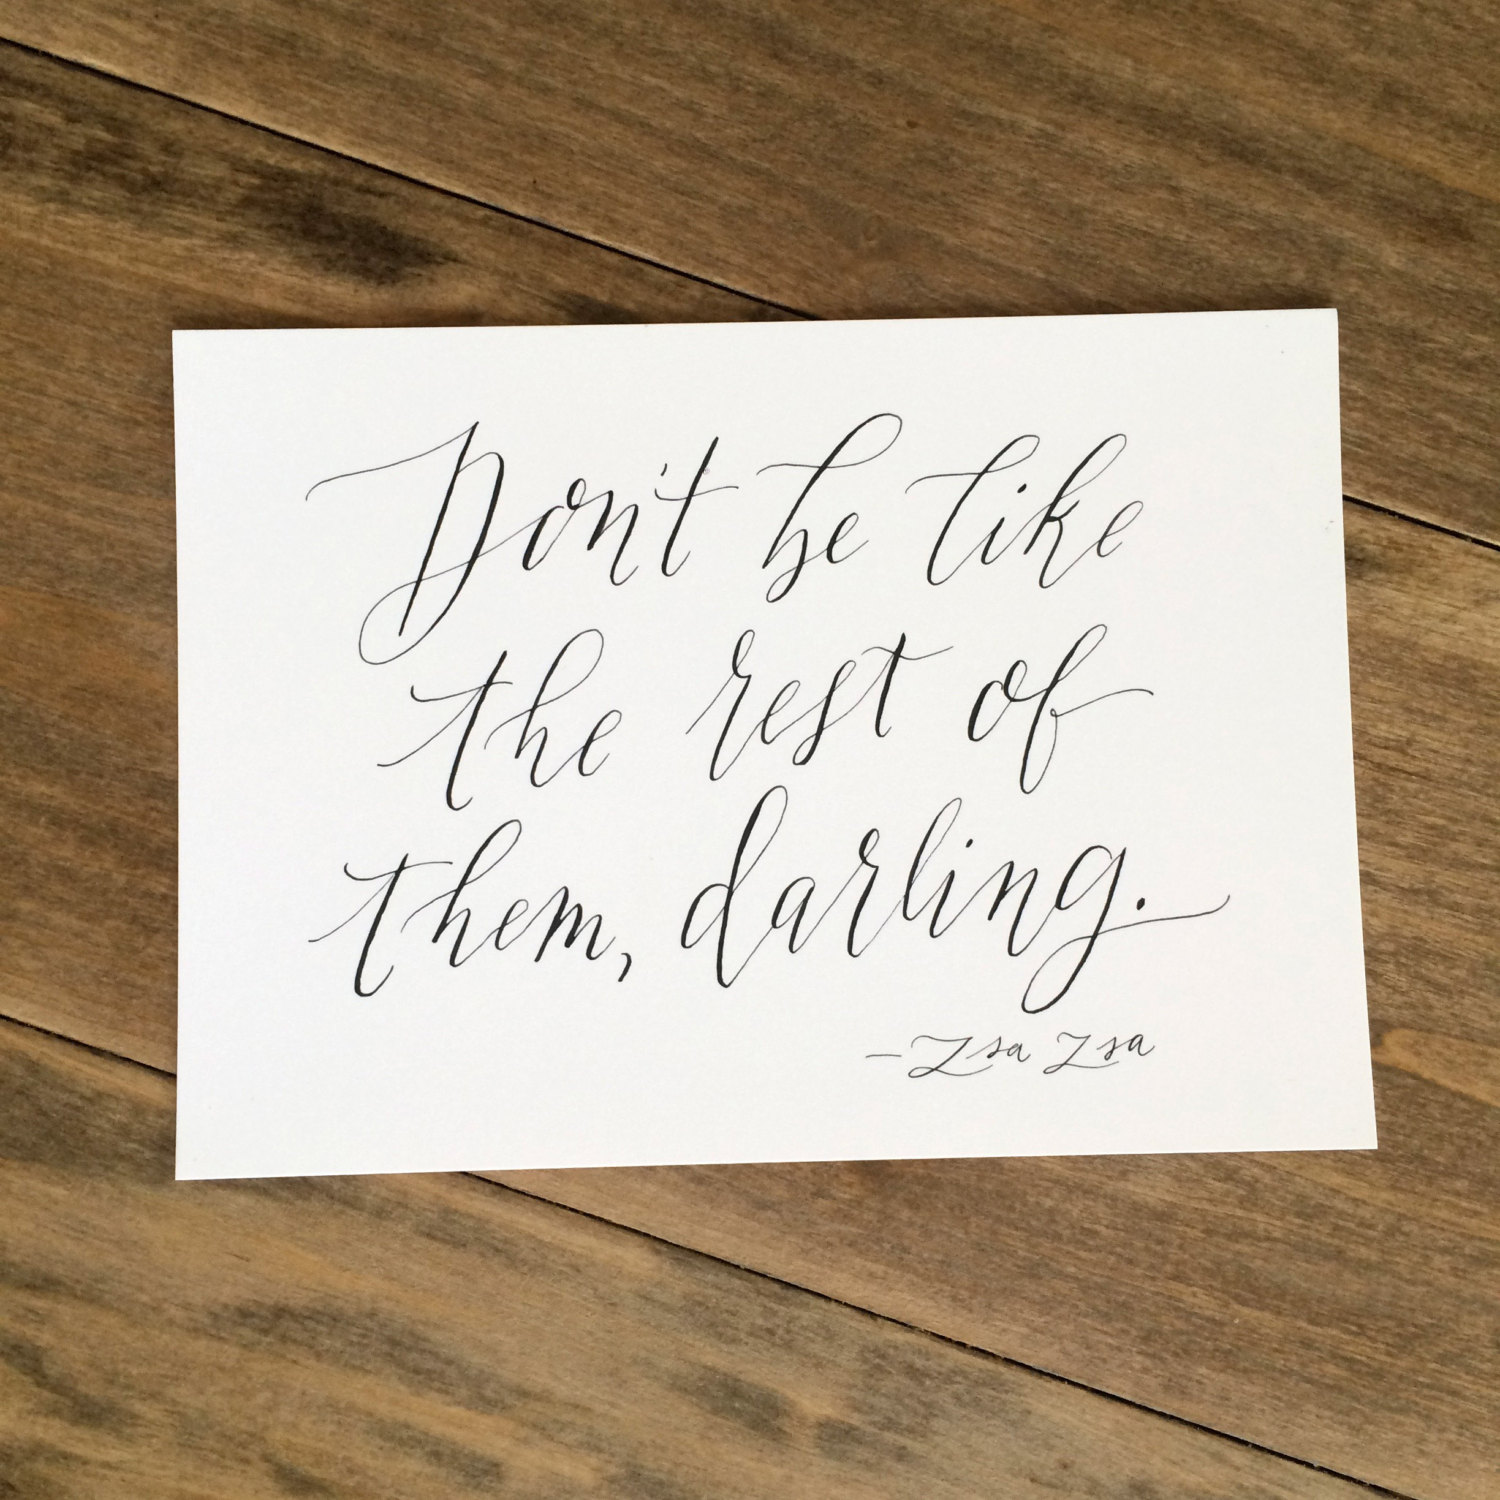 Don't be like
the rest of
them, darling.
- Zsa Zsa